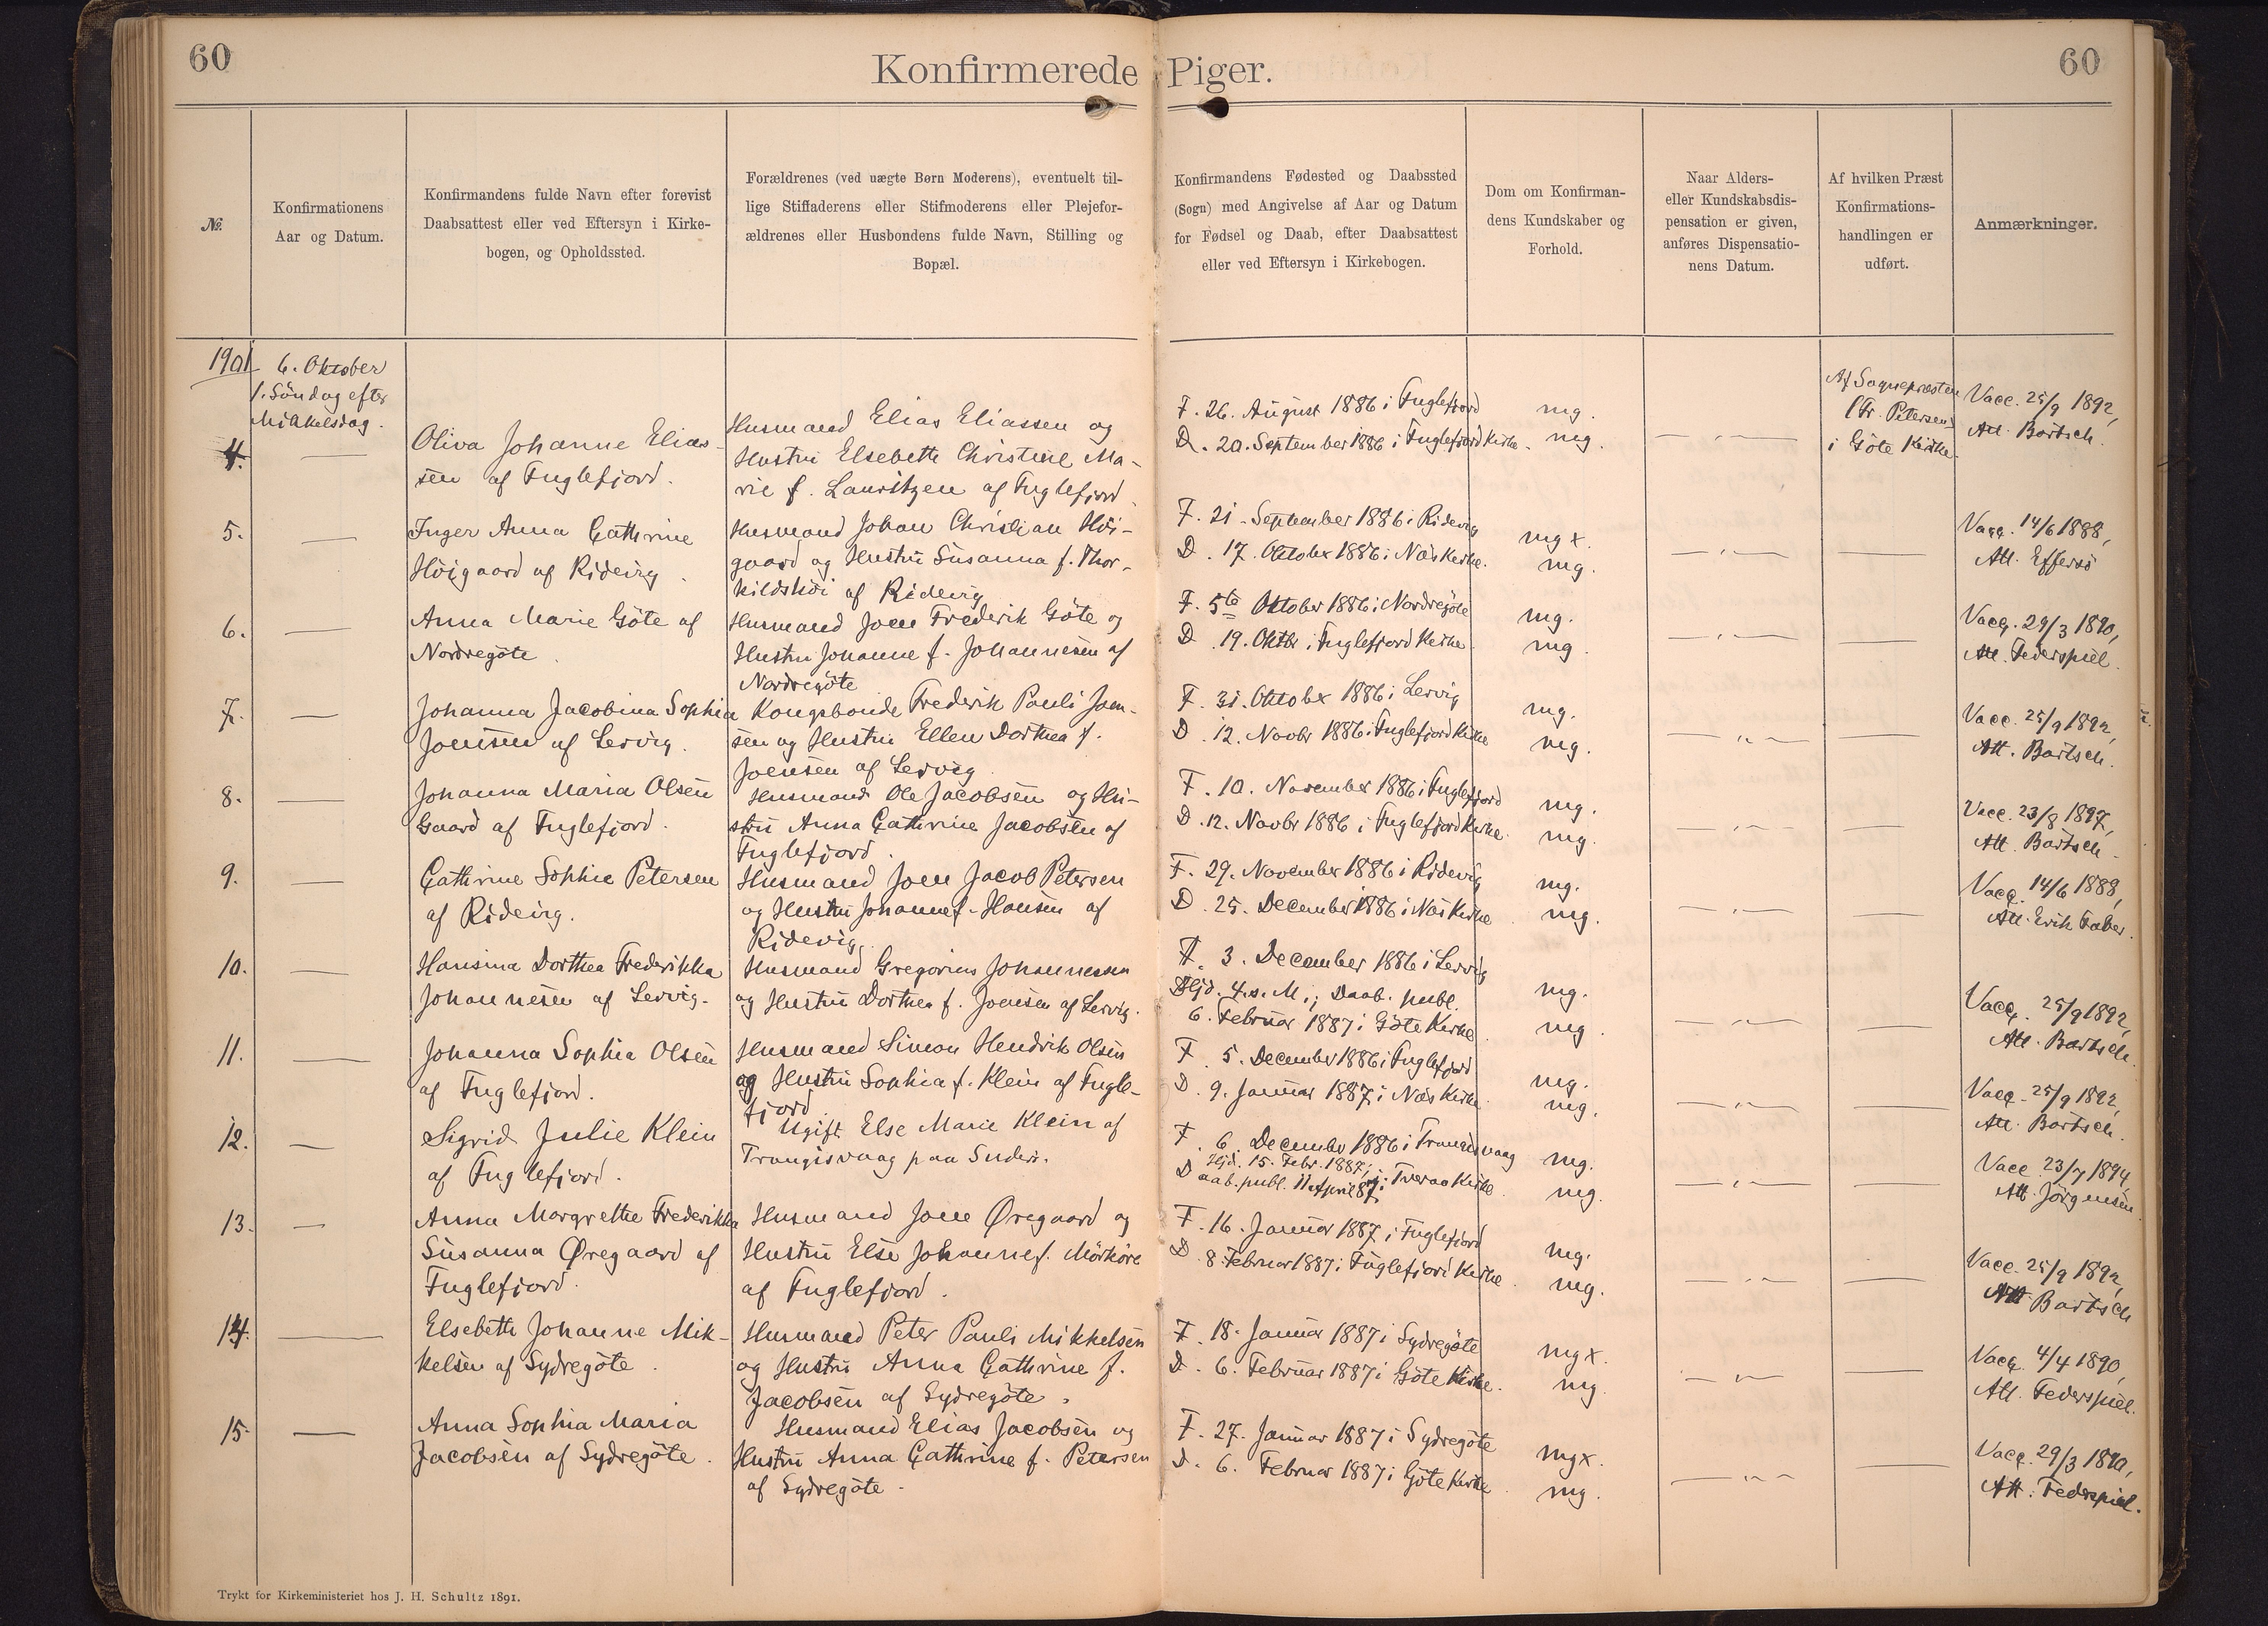 60
Konfirmerede Piger.
60
№.
Konfirmationens
Aar og Datum.
Konfirmandens fulde Navn efter forevist
Daabsattest eller ved Eftersyn i Kirke-
bogen, og Opholdssted.
Forældrenes (ved uægte Børn Moderens), eventuelt til-
lige Stiffaderens eller Stifmoderens eller Plejefor-
ældrenes eller Husbondens fulde Navn, Stilling og
Bopæl.
Konfirmandens Fødested og Daabssted
(Sogn) med Angivelse af Aar og Datum
for Fødsel og Daab, efter Daabsattest
eller ved Eftersyn i Kirkebogen.
Dom om Konfirman-
dens Kundskaber og
Forhold.
Naar Alders-
eller Kundskabsdis-
pensation er given,
anføres Dispensatio-
nens Datum.
Af hvilken Præst
Konfirmations-
handlingen er
udført.
Anmærkninger.
1901 6. Oktober
1. Söndag efter
Mikkelsdag.
4.
Oliva Johanne Elias-
sen af Fuglefjord.
Husmand Elias Eliassen og
Hustru Elsebeth Christine Ma-
rie f. Lauritzen af Fuglefjord
F. 26. August 1886 i Fuglefjord
D. 20. September 1886 i Fuglefjord Kirke.
mg.
mg.
— " —
Af Sognepræsten
(Fr. Petersen)
i Göte Kirke
Vacc. 25/9 1892,
Att. Bartsch.
5. —
Inger Anna Cathrine
Höigaard af Ridevig.
Husmand Johan Christian Höi-
gaard og Hustru Susanna f. Thor-
kildshöi af Ridevig
F. 21. September 1886 i Ridevig
D. 17. Oktober 1886 i Næs Kirke.
mg x.
mg.
— " — —
Vacc. 14/6 1888,
Att. Effersö
6. —
Anna Marie Göte af
Nordregöte.
Husmand Joen Frederik Göte og
Hustru Johanne f. Johannesen af
Nordregöte
F. 5te Oktober 1886 i Nordregöte
D. 19. Oktbr i Fuglefjord Kirke.
mg.
mg.
— " — —
Vacc. 29/3 1890,
Att. Federspiel.
7. —
Johanna Jacobina Sophia
Joensen af Lervig.
Kongsbonde Frederik Pauli Joen-
sen og Hustru Ellen Dorthea f.
Joensen af Lervig
F. 31. Oktober 1886 i Lervig
D. 12. Novbr 1886 i Fuglefjord Kirke
mg.
mg.
— " — —
Vacc. 25/9 1892,
Att. Bartsch.
8. —
Johanna Maria Olsen
Gaard af Fuglefjord.
Husmand Ole Jacobsen og Hu-
stru Anna Cathrine Jacobsen af
Fuglefjord.
F. 10. November 1886 i Fuglefjord
D. 12. Novbr 1886 i Fuglefjord Kirke.
mg.
mg.
— " — —
Vacc. 23/8 1897,
Att. Bartsch.
9. —
Cathrine Sophie Petersen
af Ridevig.
Husmand Joen Jacob Petersen
og Hustru Johanne f. Hansen af
Ridevig.
F. 29. November 1886 i Ridevig
D. 25. December 1886 i Næs Kirke.
mg.
mg.
— " — —
Vacc. 14/6 1888,
Att. Erik Faber.
10. —
Hansina Dorthea Frederikka
Johannesen af Lervig.
Husmand Gregorius Johannesen
og Hustru Dorthea f. Joensen af Lervig.
F. 3. December 1886 i Lervig
Hjd. 4. s. M.; Daab. publ.
6. Februar 1887 i Göte Kirke
mg.
mg.
— " — —
Vacc. 25/9 1892,
Att. Bartsch.
11. —
Johanna Sophia Olsen
af Fuglefjord.
Husmand Simon Hendrik Olsen
og Hustru Sophia f. Klein af Fugle-
fjord
F. 5. December 1886 i Fuglefjord
D. 9. Januar 1887 i Næs Kirke.
mg.
mg.
— " — —
Vacc. 25/9 1892,
Att. Bartsch.
12. —
Sigrid Julie Klein
af Fuglefjord.
Ugift Else Marie Klein af
Trangisvaag paa Suderö.
F. 6. December 1886 i Trangisvaag
Hjd. 15. Febr. 1887;
Daab. publ. 11 April 87 i Tveraa Kirke.
mg.
mg.
— " — —
Vacc 23/7 1894
Att. Jörgensen
13. —
Anna Margrethe Frederikka
Susanna Øregaard af
Fuglefjord.
Husmand Jone Øregaard og
Hustru Else Johanne f. Mörköre
af Fuglefjord.
F. 16. Januar 1887 i Fuglefjord
D. 8. Februar 1887 i Fuglefjord Kirke.
mg.
mg.
— " — —
Vacc. 25/9 1892,
Att Bartsch
14. —
Elsebeth Johanne Mik-
kelsen af Sydregöte.
Husmand Peter Pauli Mikkelsen
og Hustru Anna Cathrine f.
Jacobsen af Sydregöte.
F. 18. Januar 1887 i Sydregöte
D. 6. Februar 1887 i Göte Kirke.
mg x.
mg.
— " — —
Vacc. 4/4 1890,
Att. Federspiel.
15. —
Anna Sophia Maria
Jacobsen af Sydregöte.
Husmand Elias Jacobsen og
Hustru Anna Cathrine f. Petersen
af Sydregöte.
F. 27. Januar 1887 i Sydregöte
D. 6. Februar 1887 i Göte Kirke.
mg x.
mg.
— " — —
Vacc. 29/3 1890,
Att. Federspiel.
Trykt for Kirkeministeriet hos J. H. Schultz 1891.